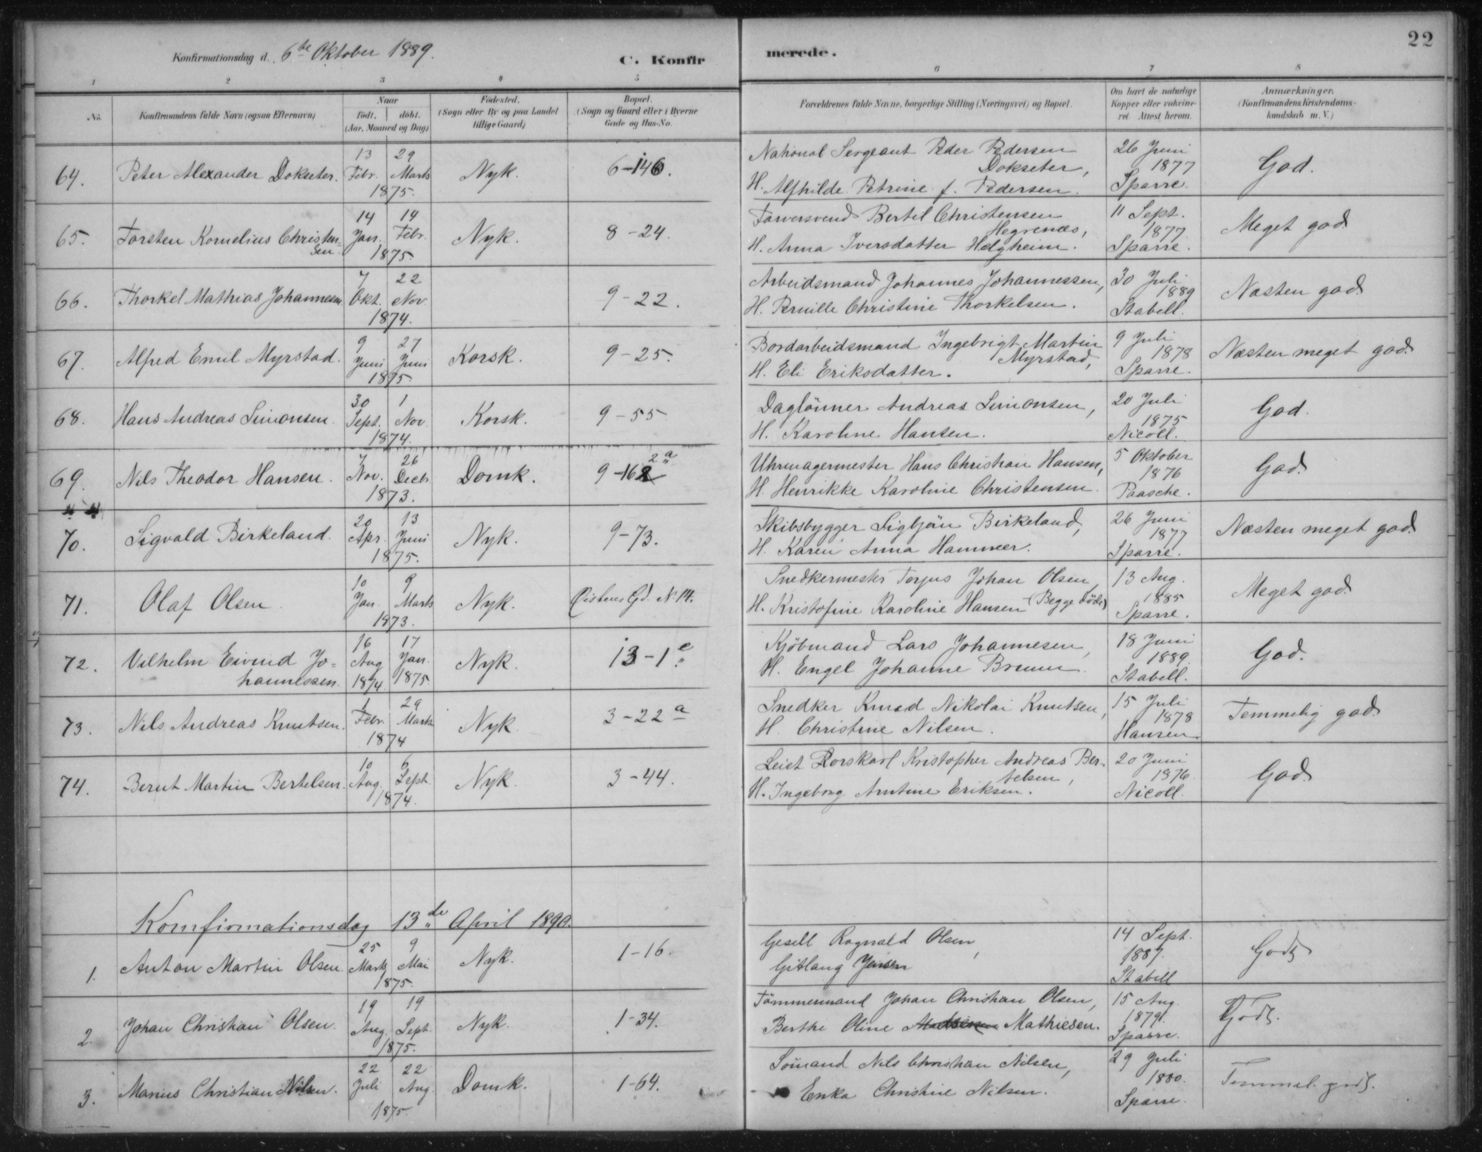 22
Konfirmationsdag d. 6te Oktober 1889.
C. Konfirmerede.
1 2 3 4 5 6 7 8
No. Konfirmandens fulde Navn (ogsaa Efternavn) Naar Født, døbt. (Aar, Maaned og Dag) Fødested. (Sogn eller By og paa Landet tillige Gaard) Bopæl. (Sogn og Gaard eller i Byerne Gade og Hus-No. Forældrenes fulde Navne, borgerlige Stilling (Næringsvei) og Bopæl. Om havt de naturlige Kopper eller vakcineret. Attest herom. Anmærkninger. (Konfirmandens Kristendomskundskab m. V.)
64. Peter Alexander Dokseter. 13 Febr. 29 Marts 1875. Nyk. 6-146. National Sergeant Peder Pedersen Dokseter, H. Alfhilde Petrine f. Pedersen. 26 Juni 1877 Sparre. God.
65. Torsten Kornelius Christensen. 14 Jan. 14 Febr. 1875. Nyk. 8-24. Farversvend Bertil Christensen Hegrenæs, H. Anna Iversdatter Helgheim. 11 Sept. 1877 Sparre. Meget god
66. Thorkel Mathias Johannesen 7 Okt. 22 Nov. 1874. 9-22. Arbeidsmand Johannes Johannessen, H. Pernille Christine Thorkelsen. 30 Juli 1889 Stabell. Næsten god
67. Alfred Emil Myrstad. 9 Juni 27 Juni 1875 Korsk. 9-25. Bordarbeidsmand Ingebrigt Martin Myrstad, H. Eli Eriksdatter. 9 Juli 1878 Sparre. Næsten meget god.
68. Hans Andreas Simonsen. 30 Sept. 1 Nov. 1874. Korsk. 9-55 Daglønner Andreas Simonsen, H. Karoline Hansen. 20 Juli 1875 Nicoll. God.
69. Nils Theodor Hansen. 7 Nov. 26 Decb. 1873. Domk. 9-162 2a Uhrmagermester Hans Christian Hansen, H. Henrikke Karoline Christensen. 5 Oktober 1876 Paasche. God.
70. Sigvald Birkeland. 20 Apr. 13 Juni 1875. Nyk. 9-73. Skibsbygger Sigbjøn Birkeland, H. Karen Anna Hammer. 26 Juni 1877 Sparre. Næsten meget god.
71. Olaf Olsen 10 Jan. 9 Marts 1873. Nyk. Cistens Gd. No 14. Snedkermester Torjus Johan Olsen, H. Kristofine Karoline Hansen (Begge døde) 13 Aug. 1885 Sparre. Meget god.
72. Vilhelm Eivind Johannessen. 16 Aug 1874 17 Jan. 1875 Nyk. 13-1e Kjøbmand Lars Johannesen, H. Engel Johanne Bruun. 18 Juni 1889 Stabell. God.
73. Nils Andreas Knutsen. 1 Febr. 29 Marts 1874 Nyk. 3-22a Snedker Knud Nikolai Knutsen, H. Christine Nilsen. 15 Juli 1878 Hansen. Temmelig god
74. Bernt Martin Bertelsen. 10 Aug. 6 Sept. 1874. Nyk. 3-44. Leiet Rorskarl Kristopher Andreas Bertelsen, H. Ingeborg Antine Eriksen. 20 Juni 1876. Nicoll. God
Konfirmationsdag 13de April 1890.
1. Anton Martin Olsen 25 Marts 9 Mai 1875. Nyk. 1-16. Gesell Ragnald Olsen, Gitlaug Jensen 14 Sept. 1887. Stabell Godt
2. Johan Christian Olsen. 19 Aug. 19 Sept. 1875. Nyk. 1-34. Tømmermand Johan Christian Olsen, Berthe Oline Mathiesen. 15 Aug. 1879. Sparre. Godt.
3. Marius Christian Nilsen. 22 Juli 22 Aug. 1875 Domk. 1-64. Sømand Nils Christian Nilsen, Enka Christine Nilsen. 29 Juli 1880. Sparre. Temmel. godt.